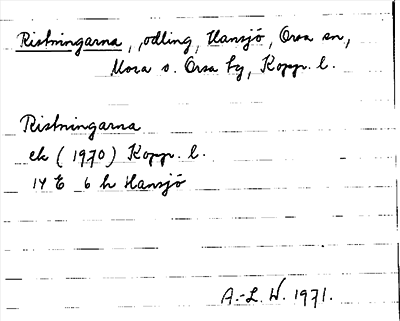 Ristningarna, odling, Hansjö, Orsa sn,
Mora o. Orsa tg, Kopp. l.
Ristningarna
ek (1970) Kopp. l.
14 E 6 h Hansjö
A.-L. W. 1971.